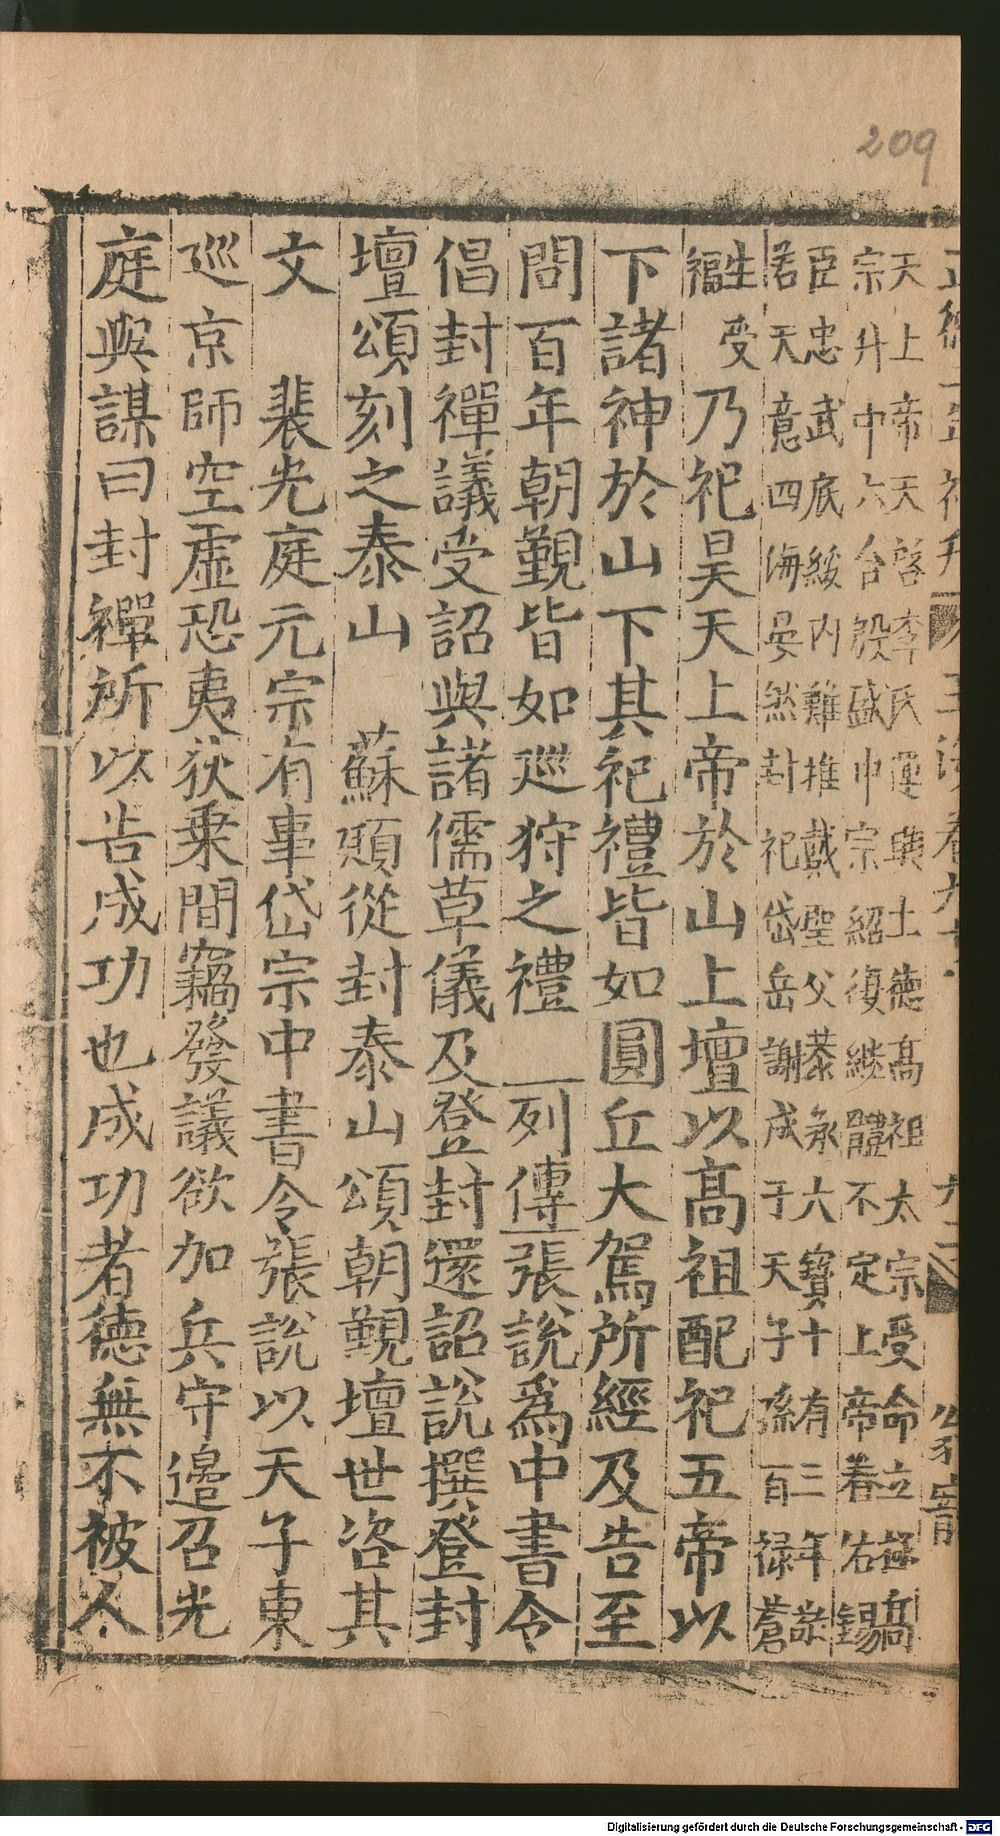 209
天上帝天啓李氏運興土德高祖太宗受命立極高
宗升中六合殷盛中宗紹復繼體不定上帝眷佑錫
臣忠武底綏內難推戴聖父恭承六寶十有三年敬
若天意四海晏然封祀岱岳謝成于天子孫百祿蒼
生受
福 乃祀昊天上帝於山上壇以高祖配祀五帝以
下諸神於山下其祀禮皆如圓丘大駕所經及告至
問百年朝覲皆如巡狩之禮 列傳張說爲中書令
倡封禪議受詔與諸儒草儀及登封還詔說撰登封
壇頌刻之泰山 蘇頲從封泰山頌朝覲壇世咨其
文 裴光庭元宗有事岱宗中書令張說以天子東
巡京師空虛恐夷狄乗間竊發議欲加兵守邉召光
庭與謀曰封禪所以告成功也成功者德無不被人
Digitalisierung gefördert durch die Deutsche Forschungsgemeinschaft - DFG